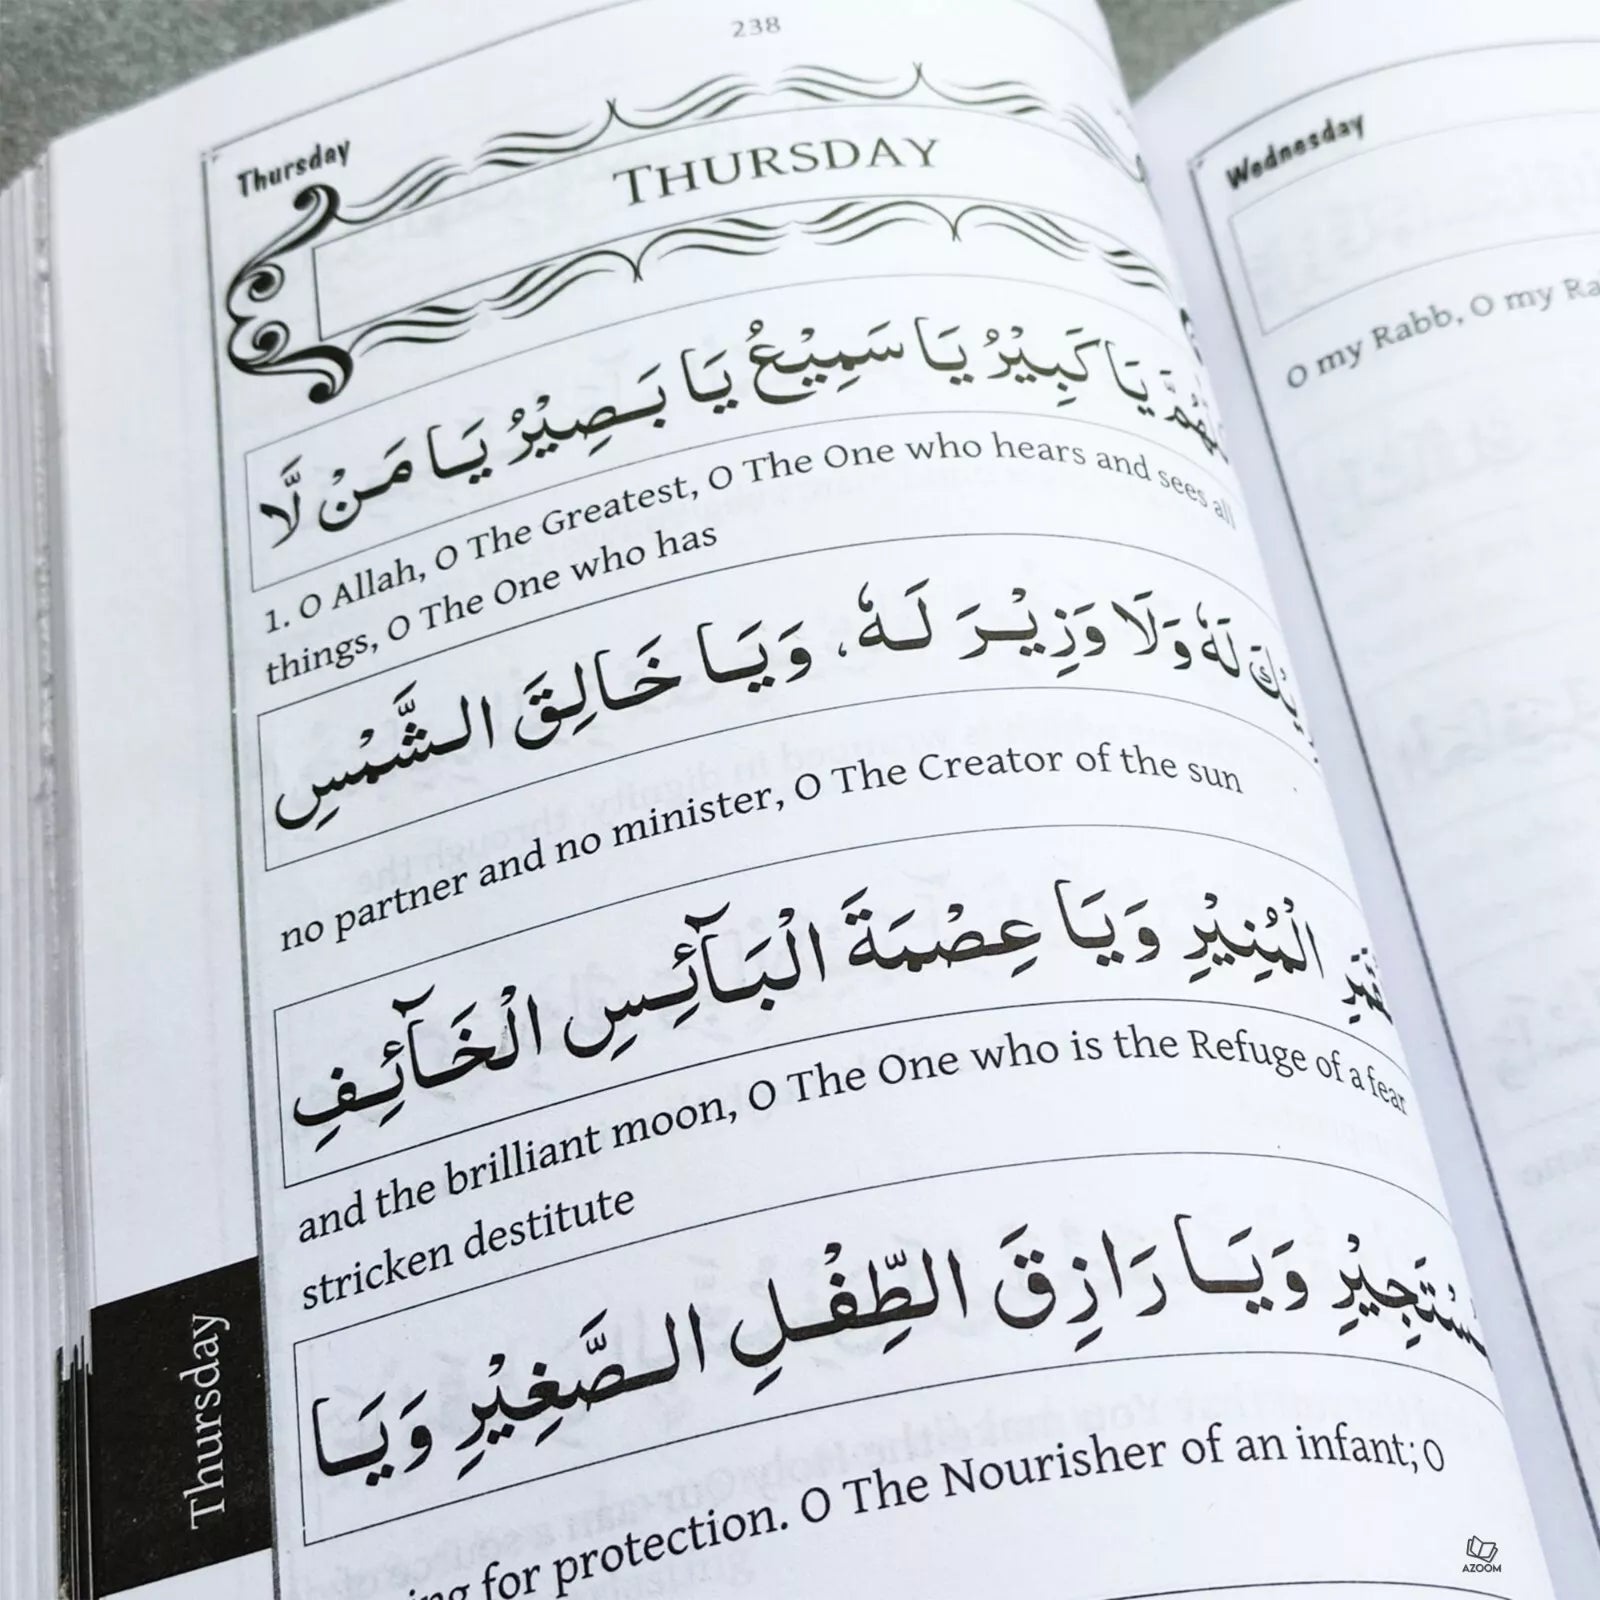 238
Thursday
THURSDAY
يَا كَبِيْرُ يَا سَمِيْعُ يَا بَصِيْرُ يَا مَنْ لَّا
1. O Allah, O The Greatest, O The One who hears and sees all
things, O The One who has
لَهٗ وَلَا وَزِيْرَ لَهٗ، وَيَا خَالِقَ الشَّمْسِ
no partner and no minister, O The Creator of the sun
الْمُنِيْرِ وَيَا عِصْمَةَ الْبَآئِسِ الْخَآئِفِ
and the brilliant moon, O The One who is the Refuge of a fear
stricken destitute
وَيَا رَازِقَ الطِّفْلِ الصَّغِيْرِ وَيَا
for protection. O The Nourisher of an infant; O
Thursday
Wednesday
O my Rabb, O my
AZOOM